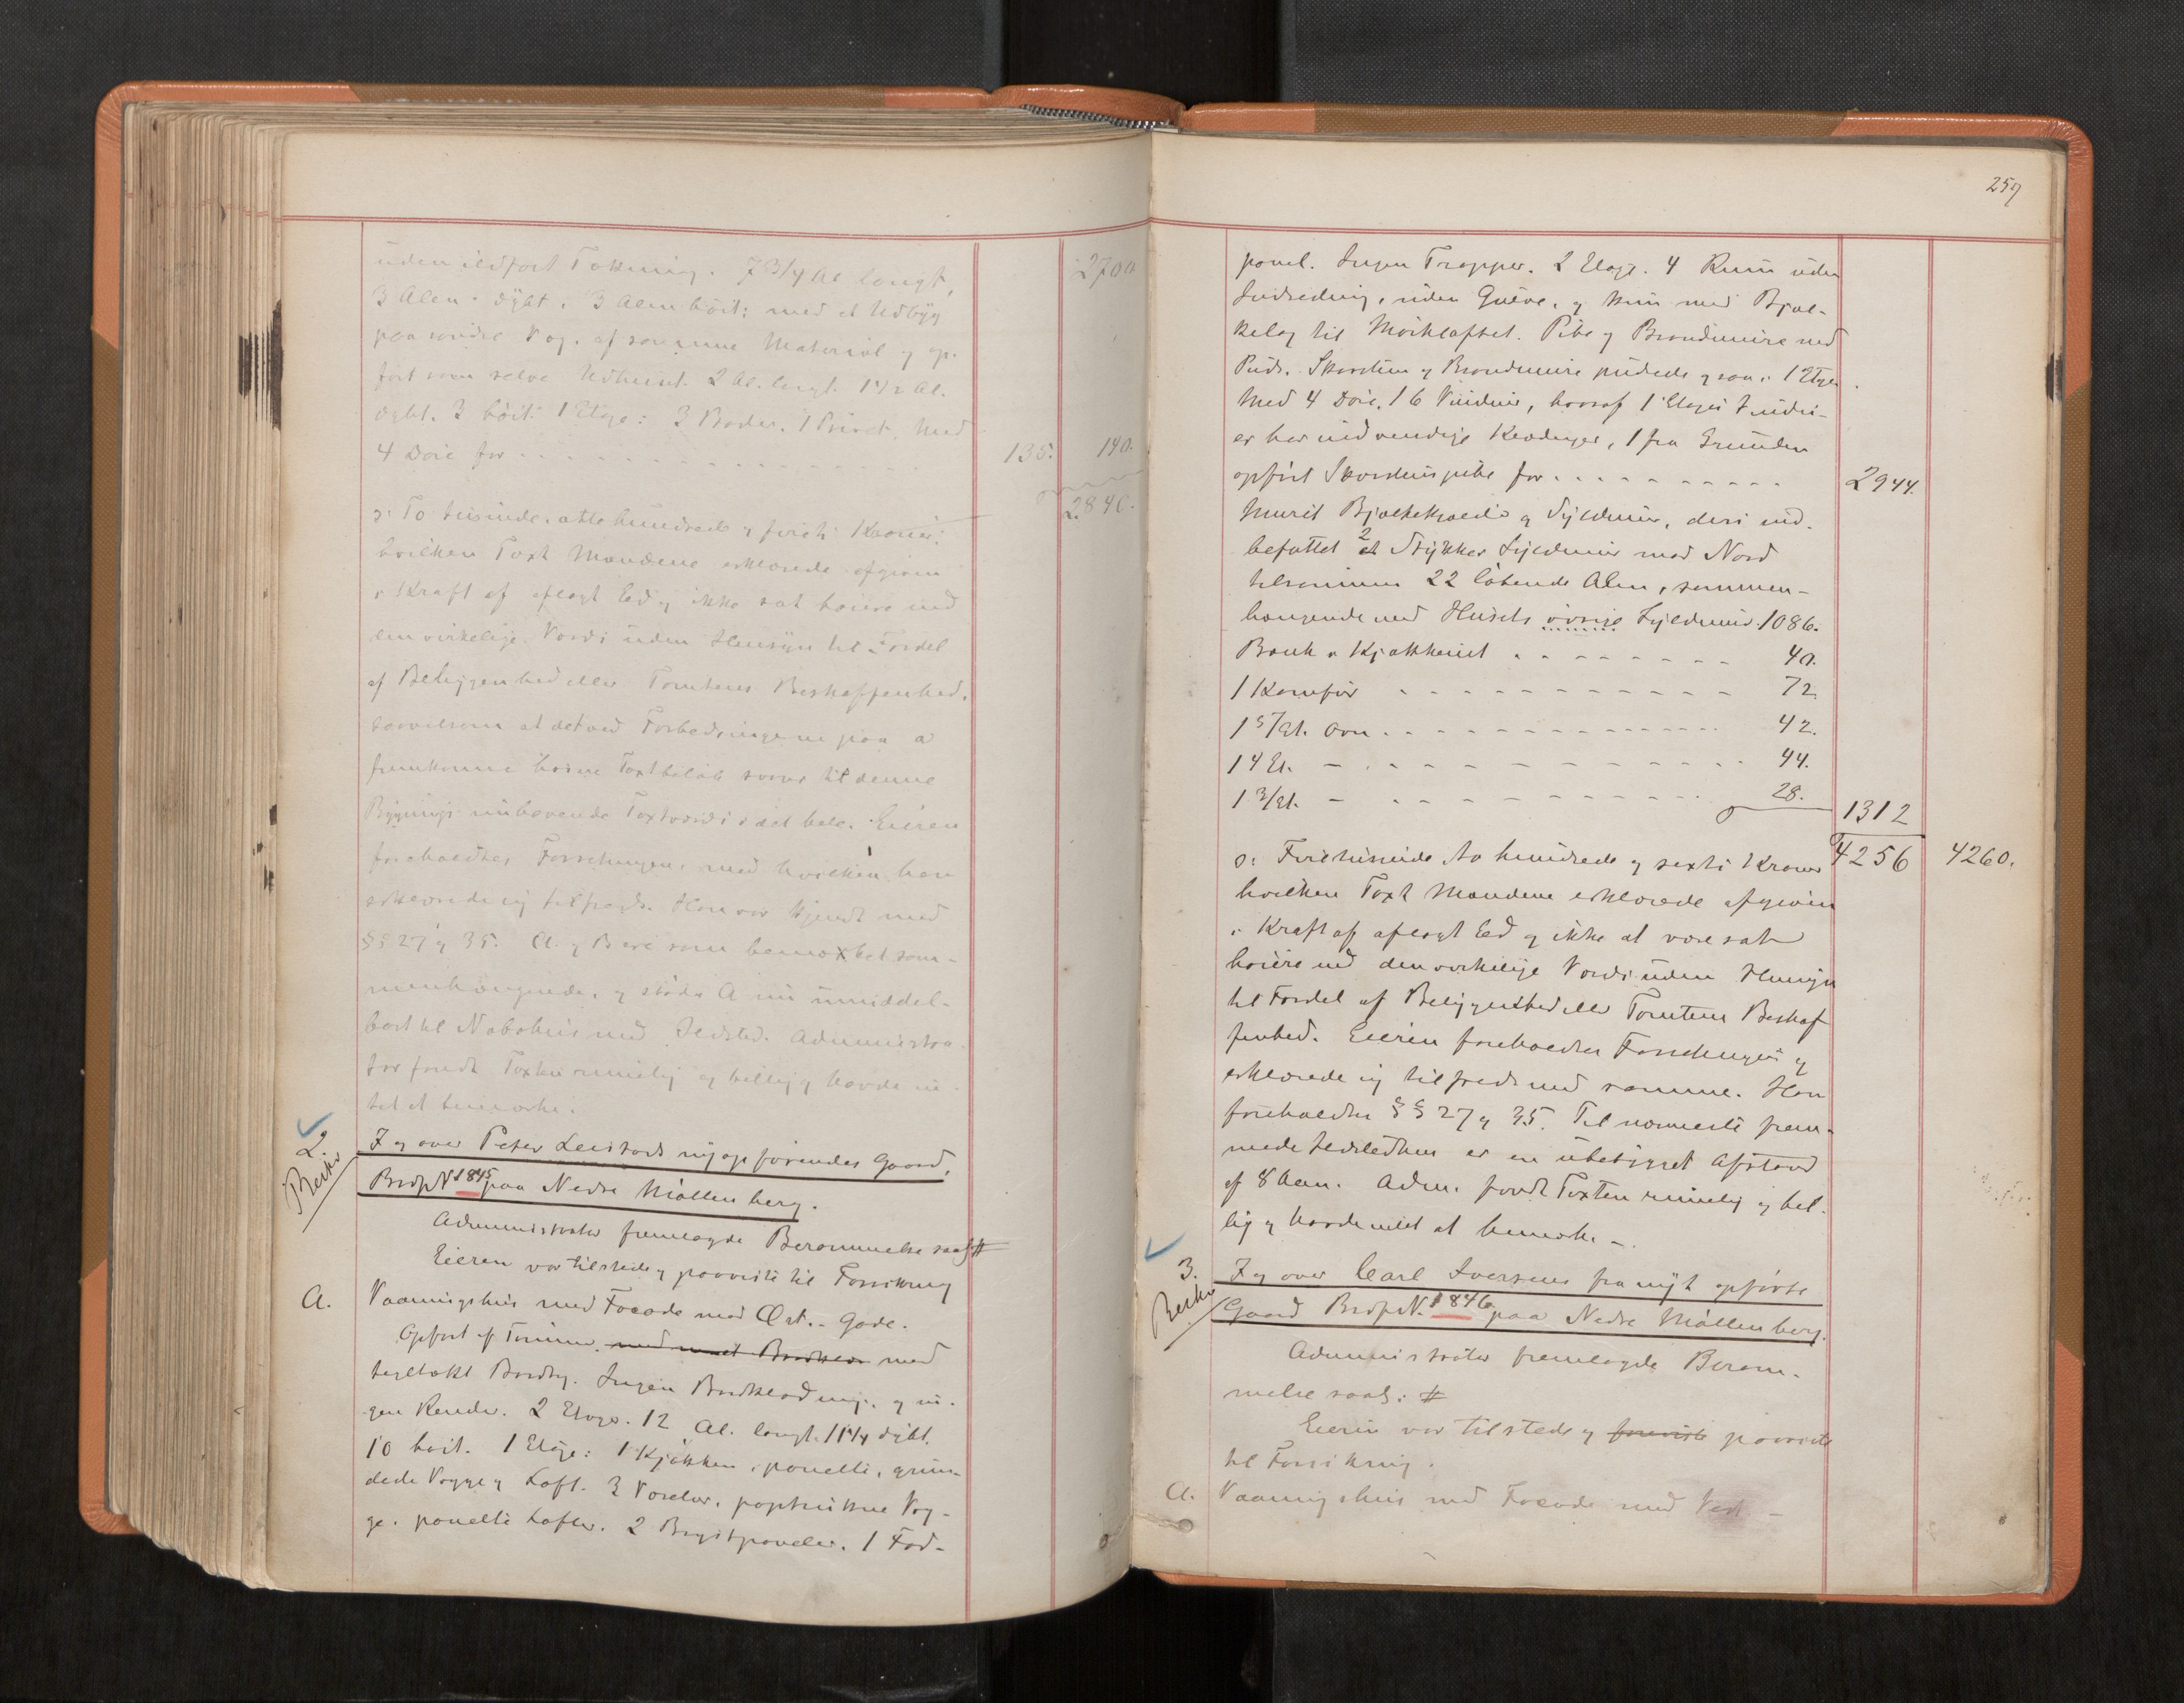 uden ildfast Tækning. 7 3/4 Al. langt, 2700
3 Alen dybt. 3 Alen höit; med et Udbyg
paa söndre Væg. af samme Material og op-
fört som selve Udhuset. 2 Al. langt. 1 1/2 Al.
dybt. 3 höit. 1 Etage: 3 Boder. 1 Privet. Med
4 Döre for 135. 140.
2840.
ɔ: To tusinde, otte hundrede og firti Kroner:
hvilken Taxt Mændene erklærede afgiven
i Kraft af aflagt Ed og ikke sat höiere end
den virkelige Værdi uden Hensyn til Fordel
af Beliggenhed eller Tomtens Beskaffenhed,
saavelsom at det ved Forbedringerne paa A
fremkomne höiere Taxtbelöb svarer til denne
Bygnings iboende Taxtværdi i det hele. Eieren
foreholdtes Forsikringen, med hvilken han
erklærede sig tilfreds. Han var kjendt med
§§ 27 og 35. A. og B ere som bemærket sam-
menhængende, og stöder A nu umiddel-
bart til Nabohus med Ildsted. Administra-
tor fandt Taxten rimelig og billig og havde in-
tet at bemærke.
2. I og over Peter Leistads nyopförendes Gaard,
BrdpN. 1845 paa Nedre Möllenberg.
Administrator fremlagde Berammelse saal. #
Eieren var tilstede og paaviste til Forsikring
A. Vaaningshus med Facade mod Öst. - Gade.
Opfört af Tömmer, med med
tegltækt Bordtag. Ingen Bordklædning, og in-
gen Render. 2 Etage. 12 Al. langt. 11 1/4 dybt.
10 höit. 1 Etage: 1 Kjökken, panelte, grun-
dede Vægge og Loft. 3 Værelser, paptrukne Væg-
ge. panelte Lofter. 2 Brystpaneler. 1 Fod-
257
panel. Ingen Trapper. 2 Etage. 4 Rum uden
Indredning, uden Gulve, og kun med Bjæl-
kelag til Mörkloftet. Pibe og Brandmure med
Puds. Skorsten og Brandmure pudsede ogsaa i 1 Etage.
Med 4 Döre, 16 Vinduer, hvoraf 1 Etages Vindu-
er har indvendige Klædninger, 1 fra Grunden
opfört Skorstenspibe for 2944.
Muret Bjælkekjælder og Syldmur, deri ind-
befattet 2 Stykker Syldmur mod Nord
tilsammen 22 löbende Alen, sammen-
hængende med Husets övrige Syldmur 1086.
Bænk i Kjökkenet 40.
1 Komfür 72.
1 5/Et. Ovn 42.
1 4 Et. - 44.
1 3/Et. - 28.
1312
4256 4260.
ɔ: Firetusinde to hundrede og sexti Kroner
hvilken Taxt Mændene erklærede afgiven
i Kraft af aflagt Ed og ikke at være sat
höiere end den virkelige Værdi uden Hensyn
til Fordel af Beliggenhed eller Tomtens Beskaf
fenhed. Eieren foreholdtes Forsikringen og
erklærede sig tilfreds med samme. Han
foreholdtes §§ 27 og 35. Til nærmeste frem-
mede Ildstedhus er en ubebygget Afstand
af 8 Alen. Adm. fandt Taxten rimelig og bil-
lig og havde intet at bemærke -.
3. I og over Carl Iversens fra nyt opförte
Gaard BrdpN. 1846 paa Nedre Möllenberg.
Administrator fremlagde Beram-
melse saal: #
Eieren var tilstede og foreviste paaviste
til Forsikring.
A. Vaaningshus med Facade mod Vest. -